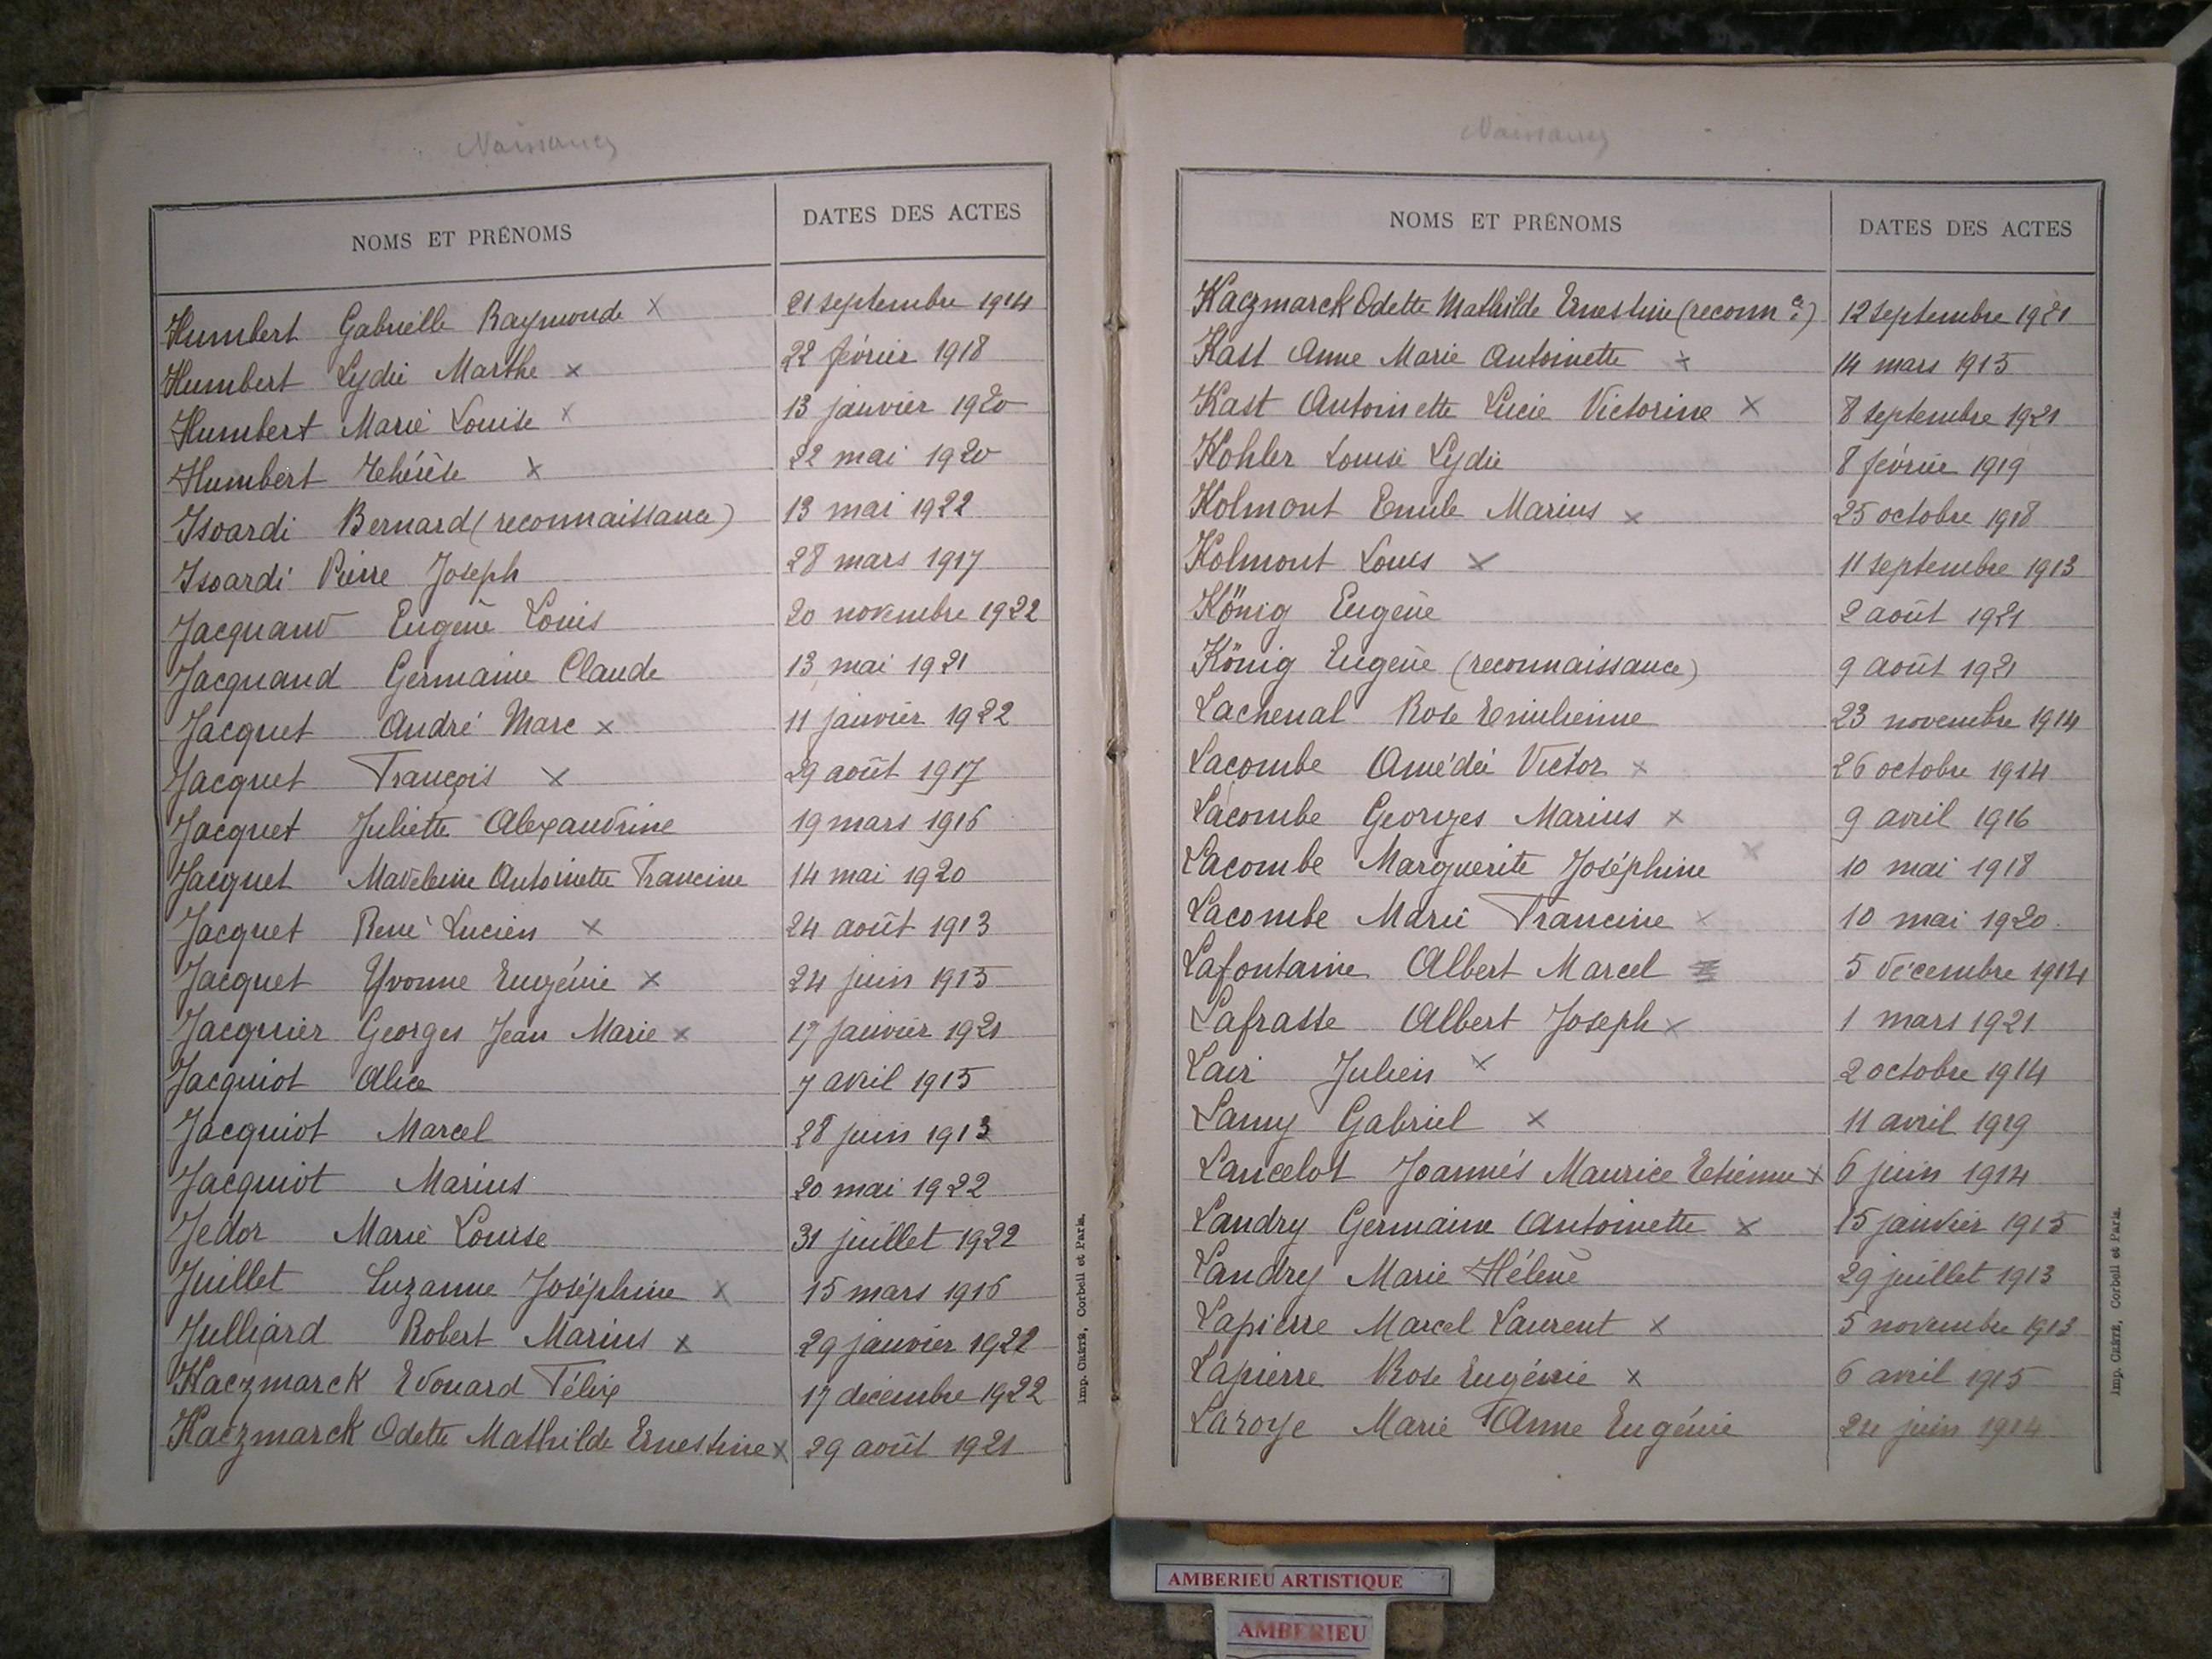 Naissances
NOMS ET PRÉNOMS DATES DES ACTES
Humbert Gabrielle Raymonde x 21 septembre 1914
Humbert Lydie Marthe x 22 février 1918
Humbert Marie Louise x 13 janvier 1920
Humbert Thérèse x 22 mai 1920
Isoardi Bernard (reconnaissance) 13 mai 1922
Isoardi Pierre Joseph 28 mars 1917
Jacquand Eugène Louis 20 novembre 1922
Jacquand Germaine Claude 13 mai 1921
Jacquet André Marc x 11 janvier 1922
Jacquet François x 29 août 1917
Jacquet Juliette Alexandrine 19 mars 1916
Jacquet Madeleine Antoinette Francine 14 mai 1920
Jacquet René Lucien x 24 août 1913
Jacquet Yvonne Eugénie x 24 juin 1915
Jacquier Georges Jean Marie x 17 janvier 1921
Jacquiot Alice 7 avril 1915
Jacquiot Marcel 28 juin 1913
Jacquiot Marius 20 mai 1922
Jedor Marie Louise 31 juillet 1922
Juillet Suzanne Joséphine x 15 mars 1916
Julliard Robert Marius x 29 janvier 1922
Kaczmarck Edouard Félix 17 décembre 1922
Kaczmarck Odette Mathilde Ernestine x 29 août 1921
Imp. CRÉTÉ, Corbeil et Paris.
Naissances
NOMS ET PRÉNOMS DATES DES ACTES
Kaczmarck Odette Mathilde Ernestine (reconn ce) 12 septembre 1921
Kast Anne Marie Antoinette x 14 mars 1915
Kast Antoinette Lucie Victorine x 8 septembre 1921
Kohler Louise Lydie 8 février 1919
Kolmont Emile Marius x 25 octobre 1918
Kolmont Louis x 11 septembre 1913
König Eugène 2 août 1921
König Eugène (reconnaissance) 9 août 1921
Lachenal Rose Emilienne 23 novembre 1914
Lacombe Amédée Victor x 26 octobre 1914
Lacombe Georges Marius x 9 avril 1916
Lacombe Marguerite Joséphine x 10 mai 1918
Lacombe Marie Francine x 10 mai 1920
Lafontaine Albert Marcel 5 décembre 1914
Lafrasse Albert Joseph x 1 mars 1921
Lair Julien x 2 octobre 1914
Lamy Gabriel x 11 avril 1919
Lancelot Joannès Maurice Etienne x 6 juin 1914
Landry Germaine Antoinette x 15 janvier 1915
Landry Marie Hélène 29 juillet 1913
Lapierre Marcel Laurent x 5 novembre 1913
Lapierre Rose Eugénie x 6 avril 1915
Laroye Marie Anne Eugénie 24 juin 1914
Imp. CRÉTÉ, Corbeil et Paris.
AMBERIEU ARTISTIQUE
AMBERIEU